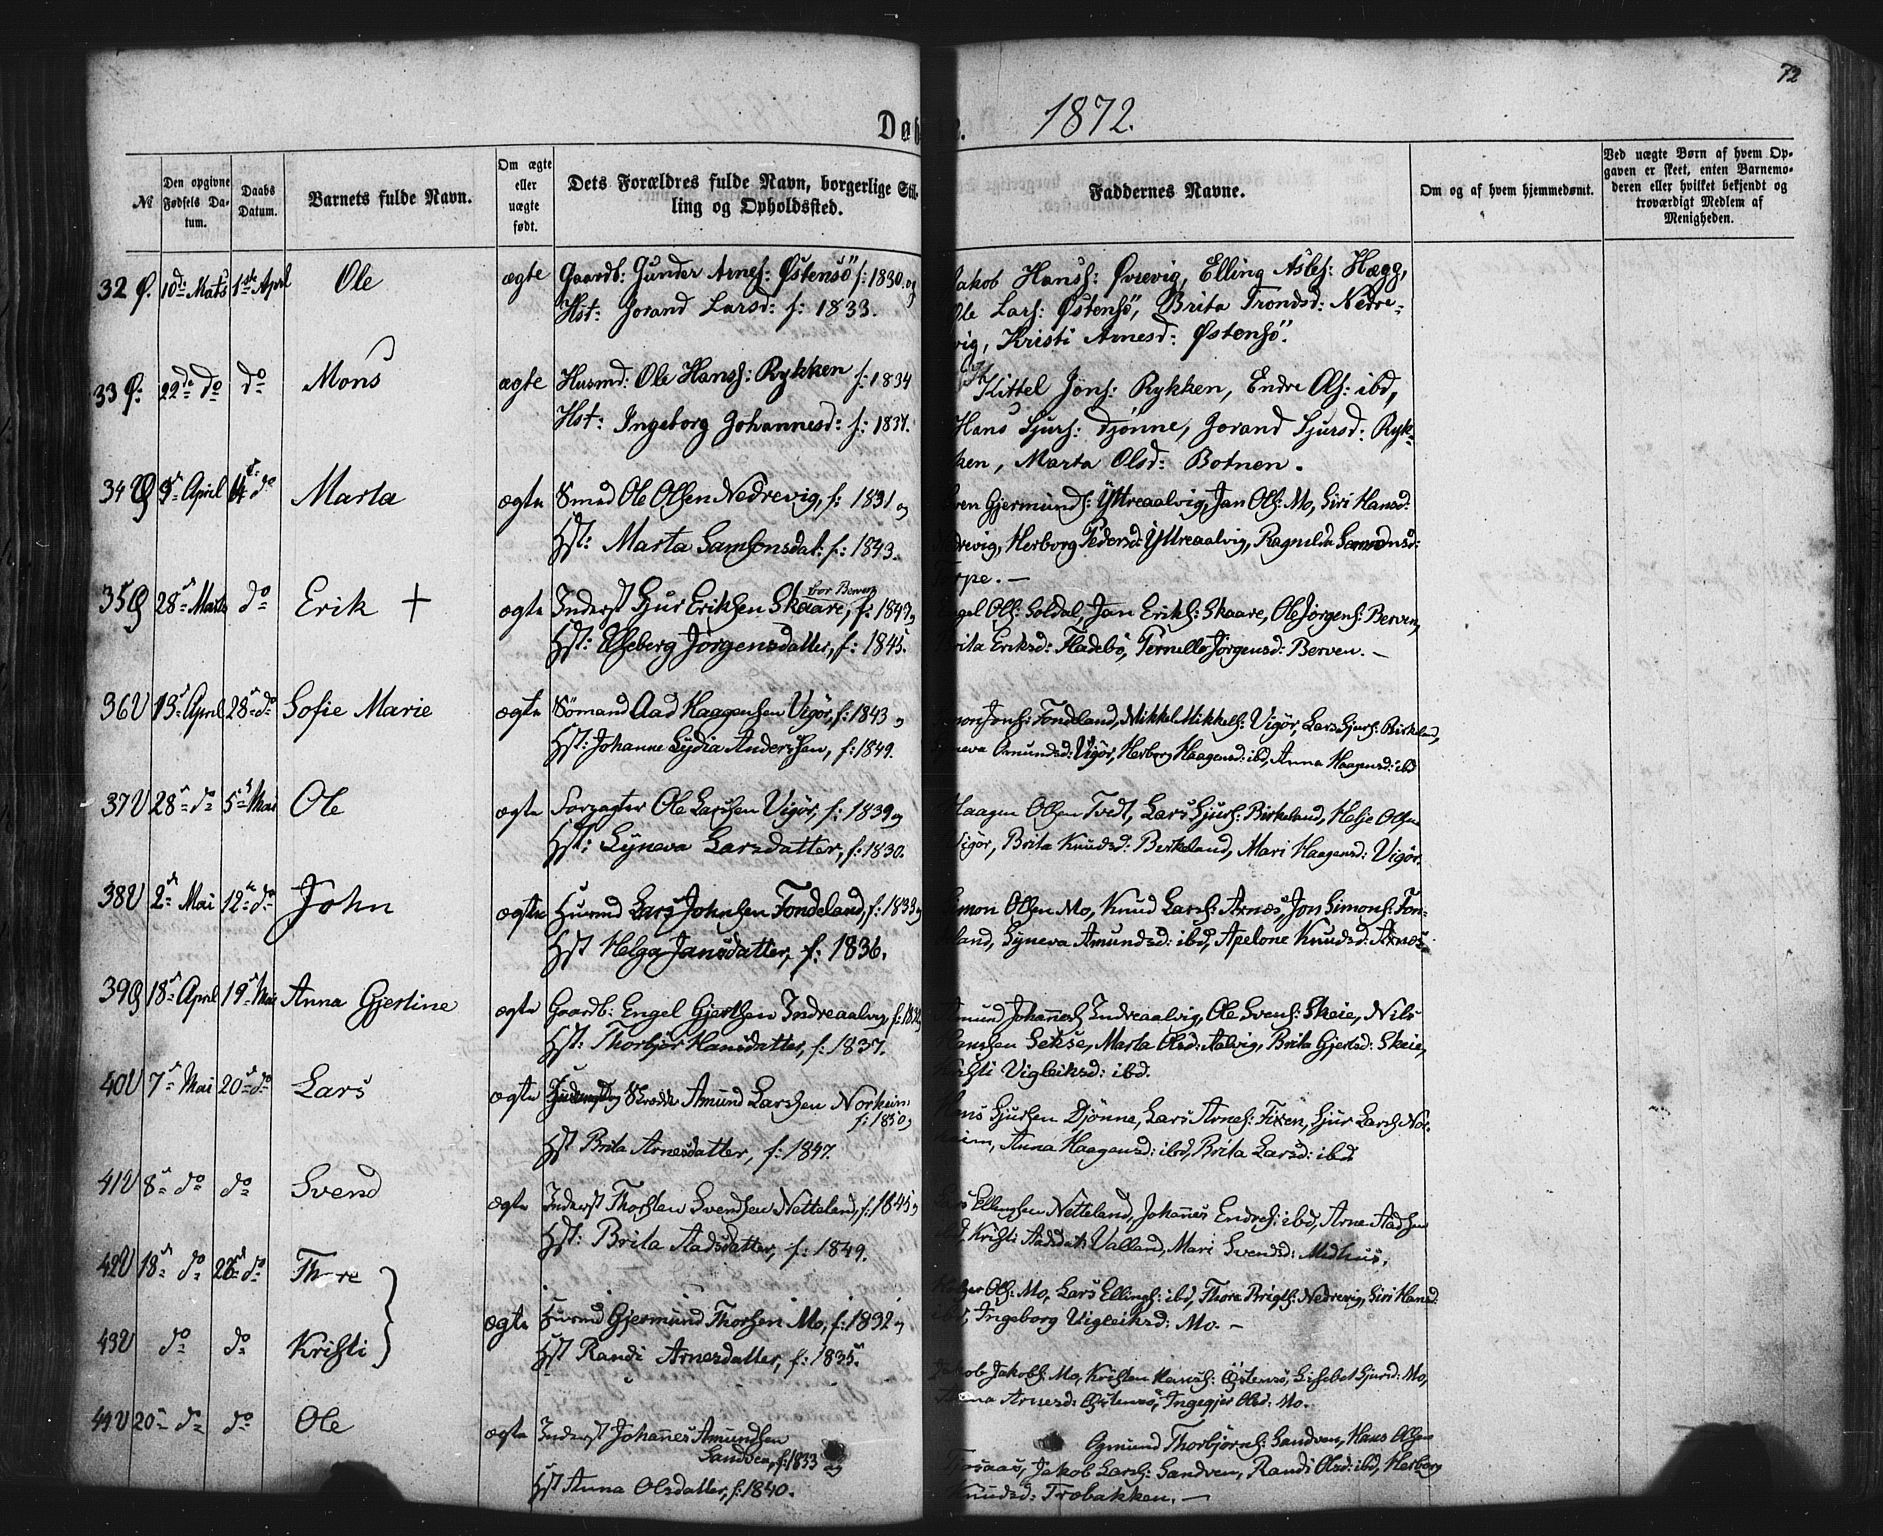 72
Døb
1872.
№
Den opgivne Fødsels Da-tum.
Daabs Datum.
Barnets fulde Navn.
Om ægte eller uægte født.
Dets Forældres fulde Navn, borgerlige Stil-
ling og Opholdssted.
Faddernes Navne.
Om og af hvem hjemmedøbt.
Ved uægte Børn af hvem Op-
gaven er skeet, enten Barnemo-
deren eller hvilket bekjendt og
troværdigt Medlem af
Menigheden.
32 Ø. 10de Mats 1ste April Ole ægte Gaardb: Gunder Arnes: Østensö f: 1830. og
Hst: Jorand Larsd: f: 1833.
Jakob Hanss: Øvrevig, Elling Asles: Hægg,
Ole Lars: Østensö, Brita Tronds d: Nedre-
vig, Kristi Arnesd: Østensö.
33 Ø. 22de do do Mons ægte Husmd: Ole Hanss: Rykken f: 1834
Hst: Ingeborg Johannesd: f: 1837.
Kittel Jöns: Rykken, Endre Ols: ibd,
Hans Sjurs: Djönne, Jorand Sjursd: Ryk-
ken, Marta Olsd: Botnen.
34 April do Marta ægte Smed Ole Olsen Nedrevig, f: 1831 og
Hst: Marta Samsonsdat: f: 1843.
Gjermunds: Yttreaalvig, Jan Ols: Mo, Siri Hansd:
Nedrevig, Herborg Pedersd: Yttreaalvig, Ragnilda
Torpe. —
35 28 Marts do Erik + ægte Inderst Sjur Eriksen Skaare, bor Berven f: 1843 og
Hst: Elseberg Jørgensdatter, f: 1845.
Engel Ols: Soldal, Jan Eriks: Skaare, Ole Jørgens: Berven,
Brita Eriksd: Fladebö, Pernille Jörgensd: Berven. —
36 U 13 April 28 do Sofie Marie ægte Sömand Aad Haagensen Vigör, f: 1843 og
Hst: Johanne Lydia Anderssen, f: 1849.
Jons: Fondeland, Mikkel Mikkels: Vigör, Lars Sjurs: Birkeland,
Synneva Amundsd: Vigör, Herborg Haagensd: ibd, Anna Haagensd: ibd
37 U 28 do 5 Mai Ole ægte Forpagter Ole Larssen Vigör, f: 1839 og
Hst: Syneva Larsdatter, f: 1830.
Haagen Olsen Tvedt, Lars Sjurs: Birkeland, Helje Olsen
Vigör, Brita Knudsd: Berkeland, Mari Haagensd: Vigör.
38 U 2 Mai 12 do John ægte Husmd Lars Johnsen Fondeland, f: 1833 og
Hst Helga Jansdatter, f: 1836.
Simon Olsen Mo, Knud Lars: Arnes, Jon Simons: Fon-
deland, Syneva Amundsd: ibd, Apelone Knudsd: Arnes
39 18 April 19 Mai Anna Gjertine ægte Gaardb: Engel Gjertsen Indreaalvig,
Hst: Thorbjør Hansdatter, f: 1837.
Amund Johannes: Indreaalvig, Ole Svens: Skeie, Nils
Hanssen Sekse, Marta Olsd: Aalvig, Brita Gjertsd: Skeie,
Kristi Vigleiksd: ibd.
40 U 7 Mai 20 do Lars ægte Skrædder Amund Larssen Norheim
f: 1850 og
Hst Brita Arnesdatter, f: 1847.
Hans Sjursen Djönne, Lars Arnes: Fixen, Sjur Lars: Nor-
heim, Anna Haagensd: ibd, Brita Larsd: ibd
41 U 8 do do Svend ægte Inderst Thorsten Svendsen Netteland, f: 1845 og
Hst: Brita Aadsdatter, f: 1849.
Lars Ellingsen Netteland, Johannes Endres: ibd, Arne Aadsen
ibd Kristi Aadsdat: Valland, Mari Svendsd: Midhus.
42 U 18 do do Thore
ægte Husmd Gjermund Thorsen Mo, f: 1832 og
Holger Ols: Mo, Lars Ellings: ibd, Thore Brigts: Nedrevig, Siri Hansd:
ibd, Ingeborg Vigleiksd: Mo. —
43 U do do Kristi
Hst Randi Arnesdatter, f: 1835.
Jakob Jakobs: Mo, Kristen Hans: Östensö, Lisebet Sjursd: Mo,
Anna Arnesd: Östensö, Ingegjer Olsd: Mo.
44 U 20 do do Ole ægte Inderst Johannes Amundsen
Sandven, f: 1833 og
Hst Anna Olsdatter, f: 1840.
Ogmund Thorbjørns: Sandven, Hans Olsen
Tjosaas, Jakob Lars: Sandven, Randi Olsd: ibd, Herborg
Knudsd: Træbakken. —